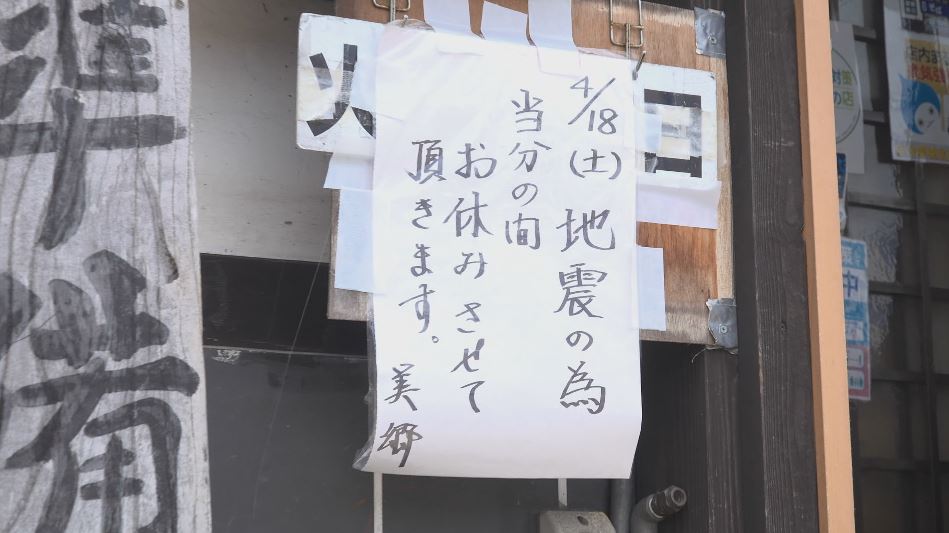 4/18(土) 地震の為
当分の間
お休みさせて
頂きます。
美郷
火
日
準備
中